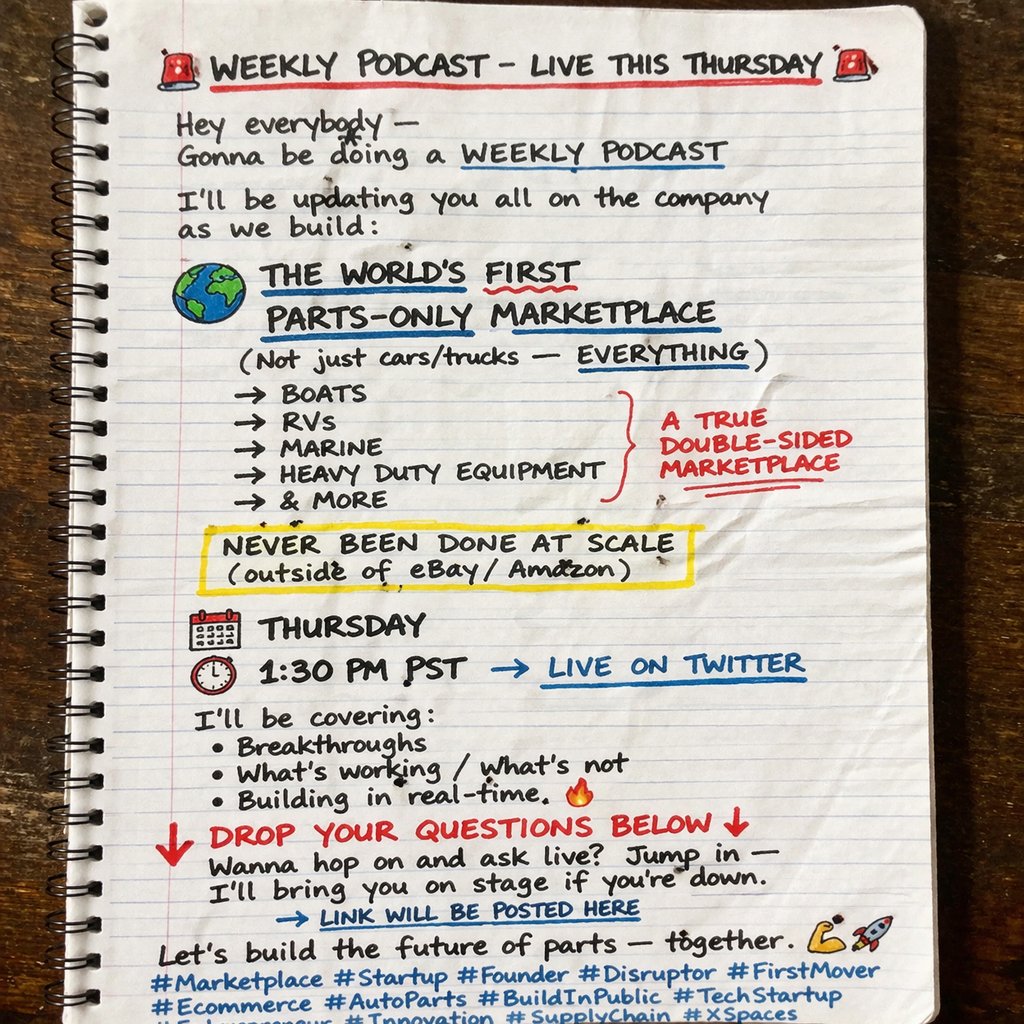 WEEKLY PODCAST – LIVE THIS THURSDAY
Hey everybody —
Gonna be doing a WEEKLY PODCAST
I'll be updating you all on the company
as we build:
THE WORLD'S FIRST
PARTS-ONLY MARKETPLACE
(Not just cars/trucks — EVERYTHING)
→ BOATS
→ RVs
→ MARINE
→ HEAVY DUTY EQUIPMENT
→ & MORE
A TRUE
DOUBLE-SIDED
MARKETPLACE
NEVER BEEN DONE AT SCALE
(outside of eBay/Amazon)
THURSDAY
1:30 PM PST → LIVE ON TWITTER
I'll be covering:
• Breakthroughs
• What's working / what's not
• Building in real-time. 🔥
↓ DROP YOUR QUESTIONS BELOW ↓
Wanna hop on and ask live? Jump in —
I'll bring you on stage if you're down.
→ LINK WILL BE POSTED HERE
Let's build the future of parts — together. 💪🚀
#Marketplace #Startup #Founder #Disruptor #FirstMover
#Ecommerce #AutoParts #BuildInPublic #TechStartup
#Entrepreneur #Innovation #SupplyChain #XSpaces